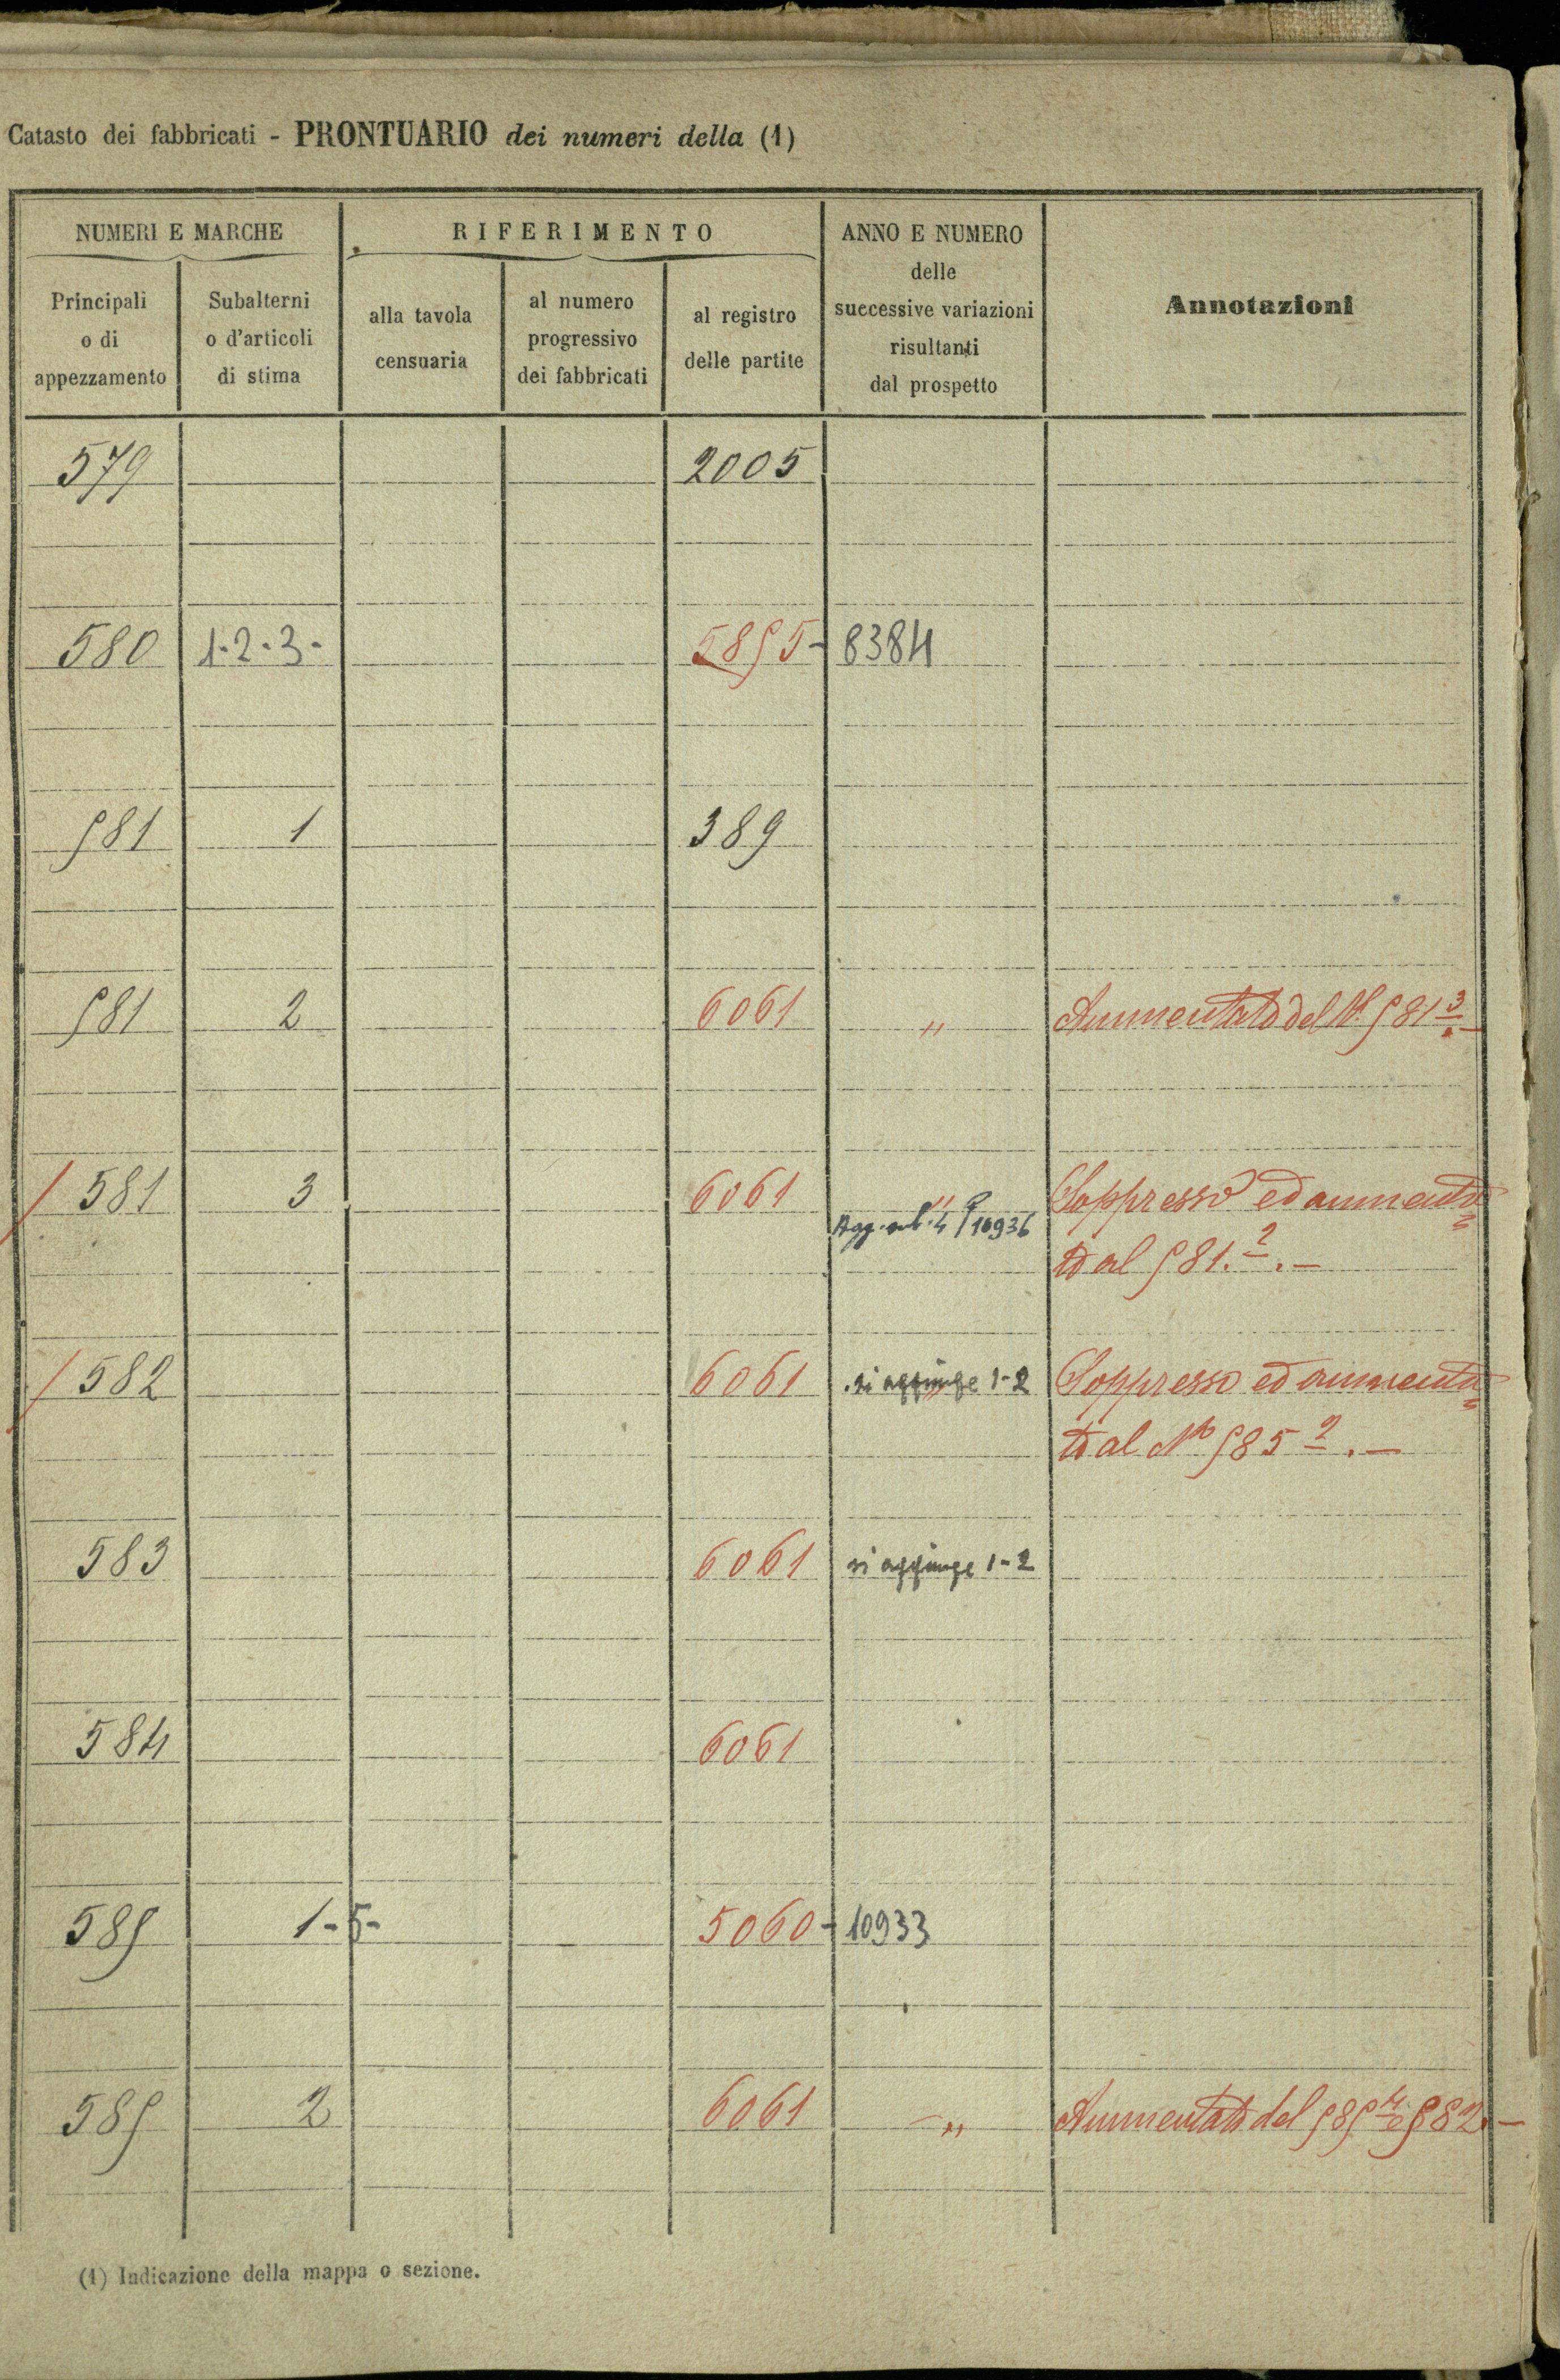 Catasto dei fabbricati - PRONTUARIO dei numeri della (1)
NUMERI E MARCHE
RIFERIMENTO
ANNO E NUMERO
delle
successive variazioni
risultanti
dal prospetto
Annotazioni
Principali
o di
appezzamento
Subalterni
o d'articoli
di stima
alla tavola
censuaria
al numero
progressivo
dei fabbricati
al registro
delle partite
579 2005
580 1-2-3- 5855- 8384
581 1 389
581 2 6061 " Aumentato del N. 581 3 . -
/ 581 3 6061 " Soppresso ed aumenta=
Agg. sub. 4 P 10936
to al 581. 2 . -
/ 582 6061 si aggiunge 1-2 Soppresso ed aumenta=
to al No 585 2 . -
583 6061 si aggiunge 1-2
584 6061
585 1-5- 5060- 10933
585 2 6061 " Aumentato del 585 4 e 582. -
(1) Indicazione della mappa o sezione.